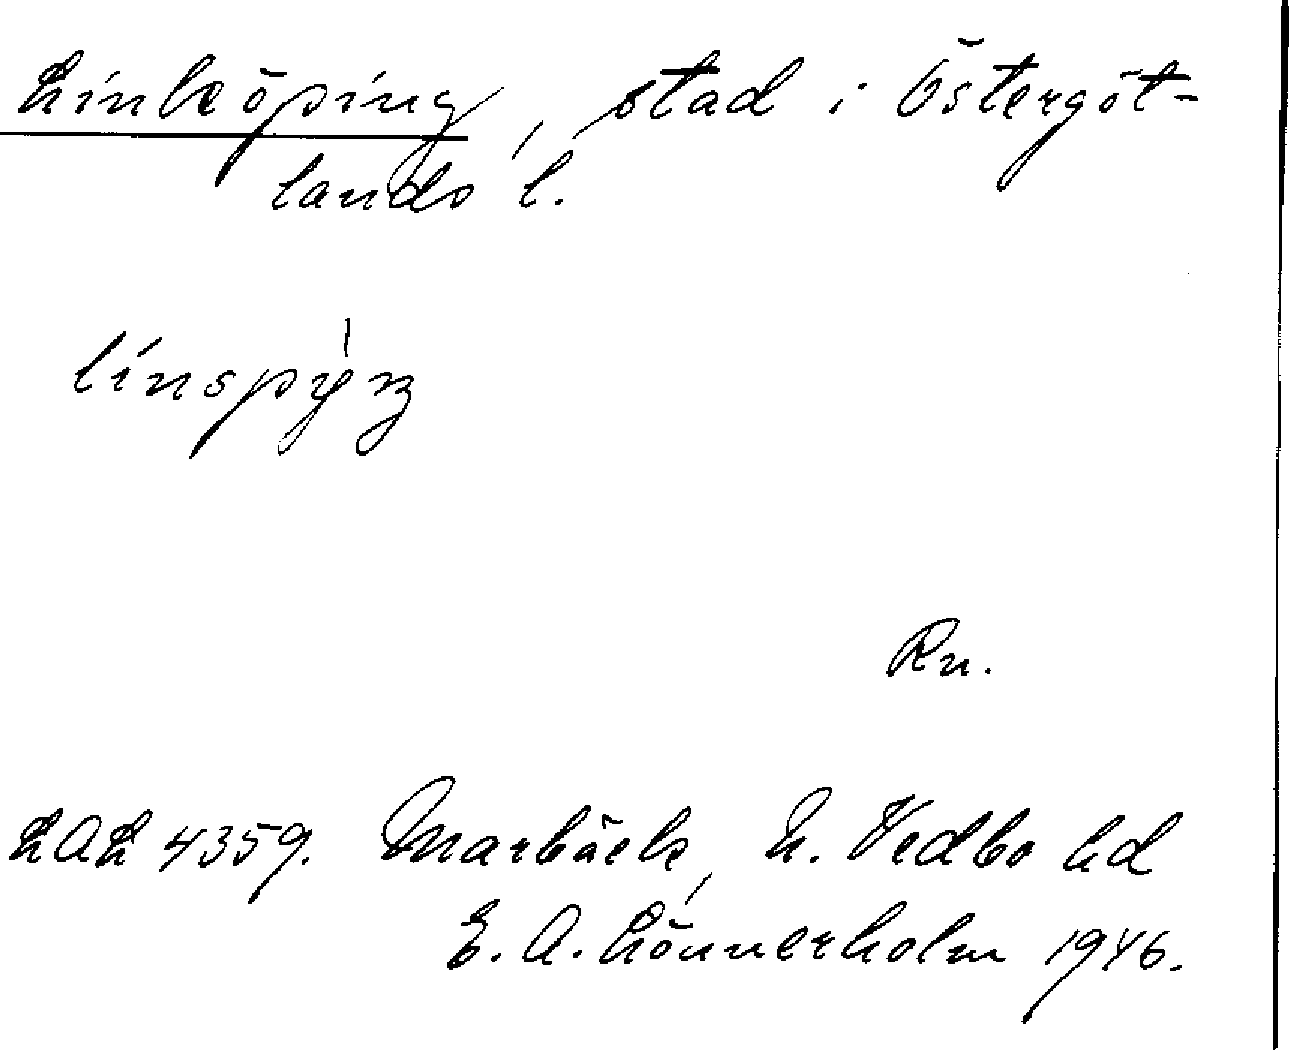 Linköping, stad i Östergöt-
lands l.
linspýŋ
Rn.
LAL 4359. Marbäck, N. Vedbo hd
E. A. Lönnerholm 1946.